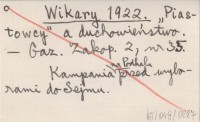 Wikary 1922. „Pias-
towcy" a duchowieństwo.
— Gaz. Zakop. 2, nr 35.
na Podhalu
Kampania przed wybo-
rami do Sejmu.